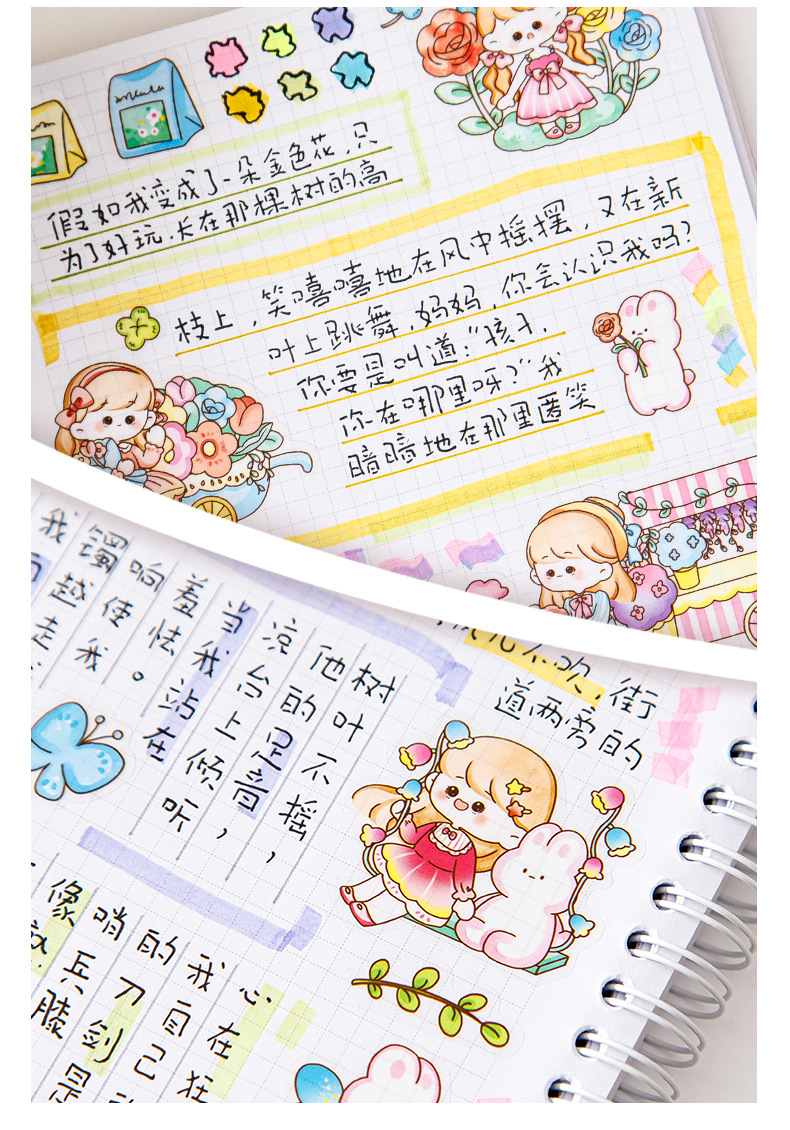 假如我变成了一朵金色花，只
为了好玩，长在那棵树的高
枝上，笑嘻嘻地在风中摇摆，又在新
叶上跳舞，妈妈，你会认识我吗？
你要是叫道：“孩子，
你在哪里呀？”我
暗暗地在那里匿笑
儿不吹，街
道两旁的
我
镯越走
响使我
羞怯。
当我站在
凉台上倾听
他的足音，
树叶不摇，
像
哨兵膝
的刀剑是
我自己
心在狂